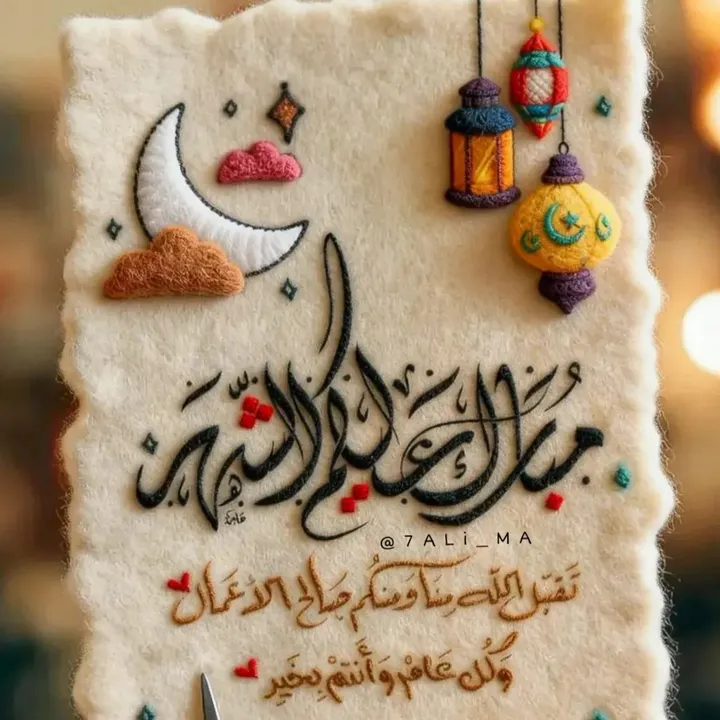 مُبارك عليكم الشّهر
@7ALi_MA
تَقبّل الله مِنا وَمِنكُم صَالح الأعمَال
وَكُل عَام وَأَنتمْ بِخَيرِ